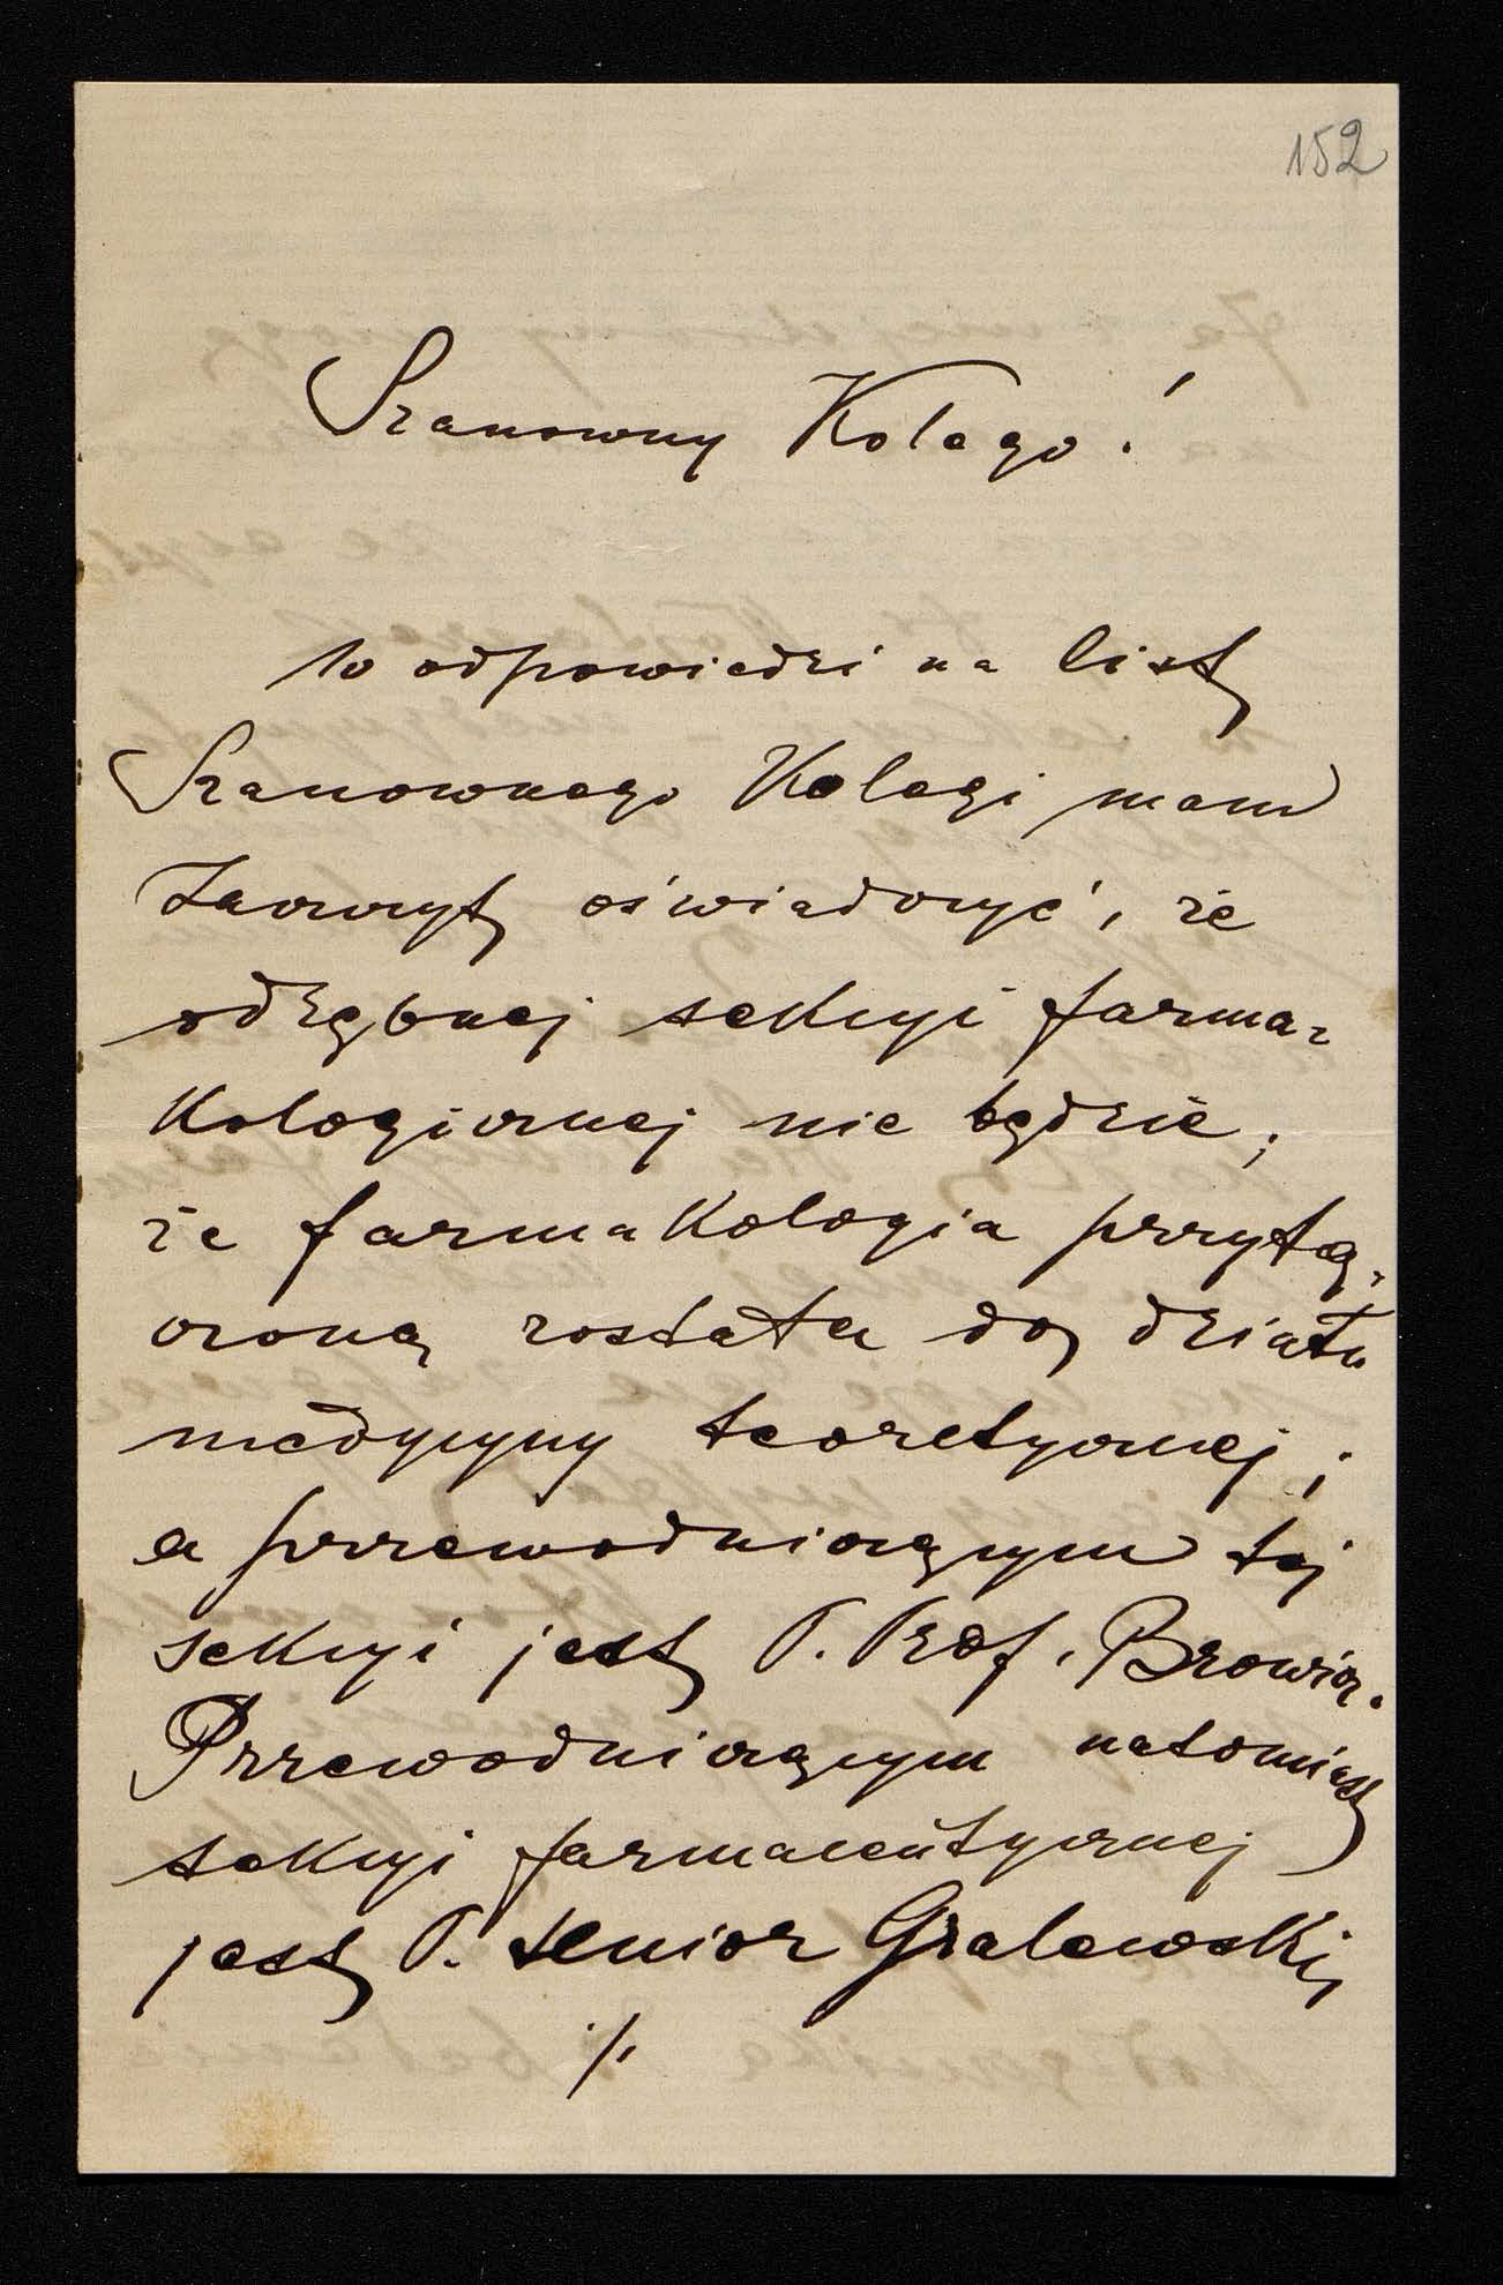 152
Szanowny Kolego!
W odpowiedzi na list
Szanownego Kolegi mam
zaszczyt oświadczyć, że
odrębnej sekcyi farma-
kologicznej nie będzie;
że farmakologia przyłą-
czoną została do działu
medycyny teoretycznej;
a przewodniczącym tej
sekcyi jest P. Prof. Browicz.
Przewodniczącym natomiast
sekcyi farmaceutycznej
jest P. Senior Gralewski,
./.